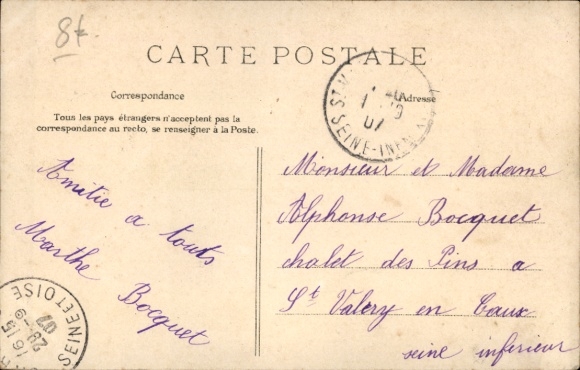 8f.
CARTE POSTALE
Correspondance
Adresse
Tous les pays étrangers n'acceptent pas la
correspondance au recto, se renseigner à la Poste.
ST-V
07
SEINE-INF
Amitie a touts
Marthe Bocquet
Monsieur et Madame
Alphonse Bocquet
chalet des Pins a
St Valery en Caux
seine inferieur
SEINE ET OISE
16 15
28 -9
07